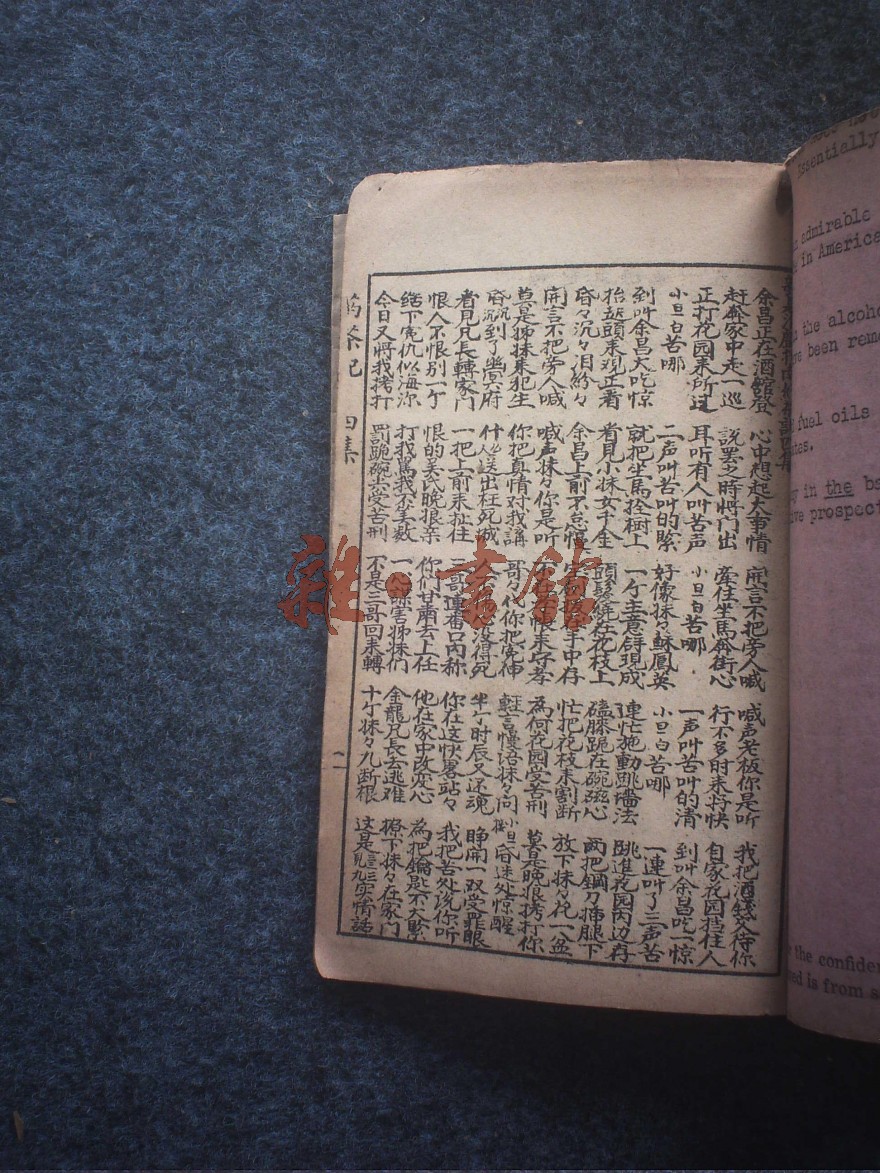 余昌正在酒館登 心中想起大事情 開言不把旁人喊 喊声老板你是听 我把酒錢交待你
赶奔家中走一巡 説罢之時将門出 牽住坐馬奔街心 行不多时来将快 自家花园挡住人
正打花园来所过 耳听有人叫苦声 小旦白苦哪 一声叫苦叫的清 到叫余昌吃一惊
小旦白苦哪 二声叫苦叫的緊 好像妹々蘇鳳英 小旦白苦哪 一連叫了三声苦
到叫余昌大吃惊 就把坐馬拴樹上 一个主意現成 連忙施動跳墻法 跳進花园内边存
抬起頭来观正着 看見小妹女千金 頭髮繞在花枝上 磕膝跪在碗磁心 两把鋼刀揷腿下
昏々沉々泪紛々 余昌上前不怠慢 手中存 忙把花枝来割断 放下妹々花一盆
開言不把旁人喊 喊声妹々你是听 眼来 為何花園受苦刑 莫是晚狠拷打你
莫是姊妹来犯生 你把真情对我講 哥々代你把冤伸 輕言慢語妹々問 小旦接 昏迷处惊醒
昏沉沉到了幽冥府 什么人送出枉死城 没得死 半个时辰又还魂 睁開一双受罪眼
看見兄長轉家門 一把上前来扯住 三哥連番口内称 你在這快畧站々 我把苦处说你听
恨人不恨別一个 恨的吴氏晚狠亲 你们甘肃去上任 他在家中改变心 為把鑰匙不大緊
结下冤仇似海深 打我罵我不差数 一心謀害姊妹们 金龍兄長去逃难 撩下妹々在家門
今日又将我拷打 罰跪碗尖受苦刑 不是三哥回来轉 十个妹々九断根 这是实情話
药茶记 四集 一
雜·書館
Essentially
admirable
in America
the alcoho
been reme
fuel oils
in the ba
prospect
the confiden
is from s